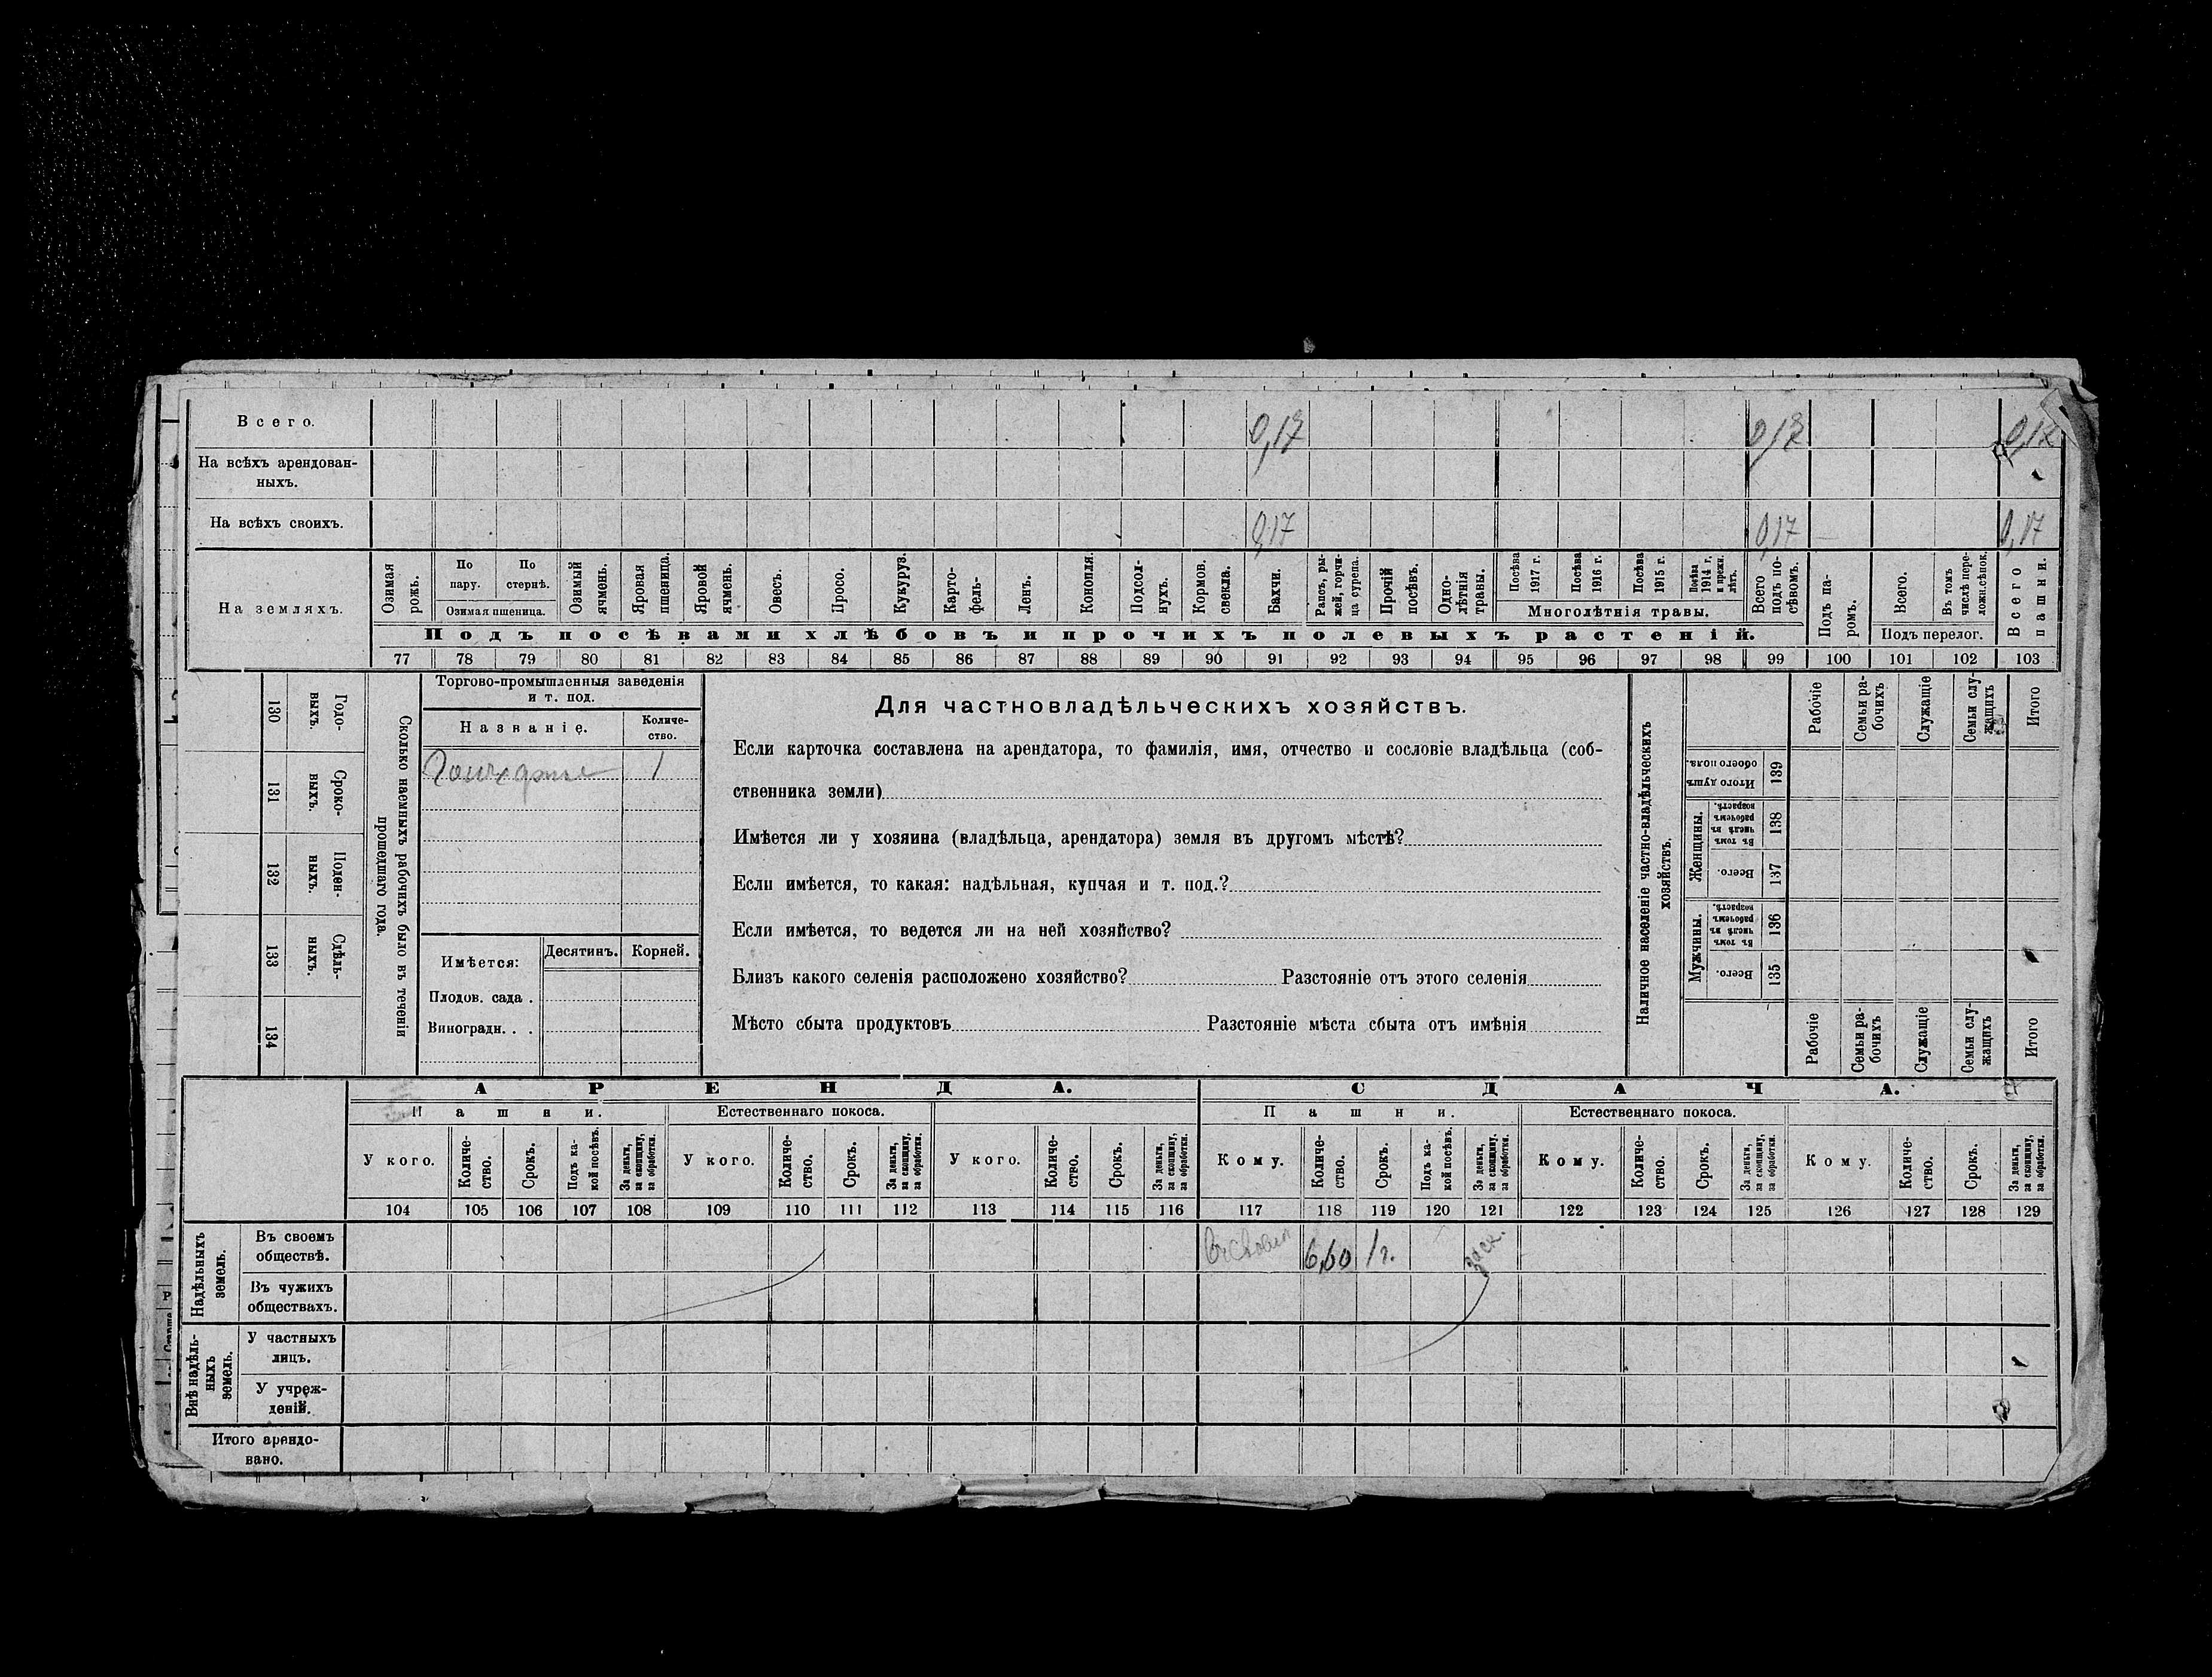 Всего. 0,17 0,17 0,17
На всѣхъ арендован-
ныхъ.
На всѣхъ своихъ. 0,17 0,17 0,17
На земляхъ.
Озимая рожь.
По пару.
По стернѣ.
Озимая пшеница.
Озимый ячмень.
Яровая пшеница.
Яровой ячмень.
Овесъ.
Просо.
Кукуруз.
Карто-
фель-
Ленъ.
Конопля.
Подсол-
нухъ.
Кормов.
свекла.
Бахчи.
Рапсъ, ры-
жей, горчи-
ца сурепа.
Прочій
посѣвъ.
Одно-
лѣтнія
травы.
Посѣва
1917 г.
Посѣва
1916 г.
Посѣва
1915 г.
Посѣва
1914 г.
и прежн.
лѣтъ.
Многолѣтнія травы.
Всего
подъ по-
сѣвомъ.
Подъ па-
ромъ.
Всего.
Въ томъ
числѣ пере-
ложн.сѣнок.
Подъ перелог.
Всего
пашни.
Подъ посѣвами хлѣбовъ и прочихъ полевыхъ растеній.
77 78 79 80 81 82 83 84 85 86 87 88 89 90 91 92 93 94 95 96 97 98 99 100 101 102 103
130 Годо-
выхъ.
131 Сроко-
выхъ.
132 Поден-
ныхъ.
133 Сдѣль-
ныхъ.
134
Сколько наемныхъ рабочихъ было въ теченіи
прошедшаго года.
Торгово-промышленныя заведенія
и т. под.
Названіе.
Количе-
ство.
1
Имѣется:
Десятинъ. Корней.
Плодов. сада .
Виноградн. . .
Для частновладѣльческихъ хозяйствъ.
Если карточка составлена на арендатора, то фамилія, имя, отчество и сословіе владѣльца (соб-
ственника земли)
Имѣется ли у хозяина (владѣльца, арендатора) земля въ другомъ мѣстѣ?
Если имѣется, то какая: надѣльная, купчая и т. под.?
Если имѣется, то ведется ли на ней хозяйство?
Близъ какого селенія расположено хозяйство? Разстояніе отъ этого селенія
Мѣсто сбыта продуктовъ Разстояніе мѣста сбыта отъ имѣнія
Наличное населеніе частно-владѣльческихъ
хозяйствъ.
Рабочіе
Семьи ра-
бочихъ
Служащіе
Семьи слу-
жащихъ
Итого
Итого душъ
обоего пола.
139
Женщины.
Въ томъ
числѣ въ
рабочемъ
возрастѣ.
138
Всего.
137
Мужчины.
Въ томъ
числѣ въ
рабочемъ
возрастѣ.
136
Всего.
135
Рабочіе
Семьи ра-
бочихъ
Служащіе
Семьи слу-
жащихъ
Итого
АРЕНДА. СДАЧА.
Пашни. Естественнаго покоса. Пашни. Естественнаго покоса.
У кого.
Количе-
ство.
Срокъ.
Подъ ка-
кой посѣвъ.
За деньги,
за скопщину,
за обработки.
У кого.
Количе-
ство.
Срокъ.
За деньги,
за скопщину,
за обработки.
У кого.
Количе-
ство.
Срокъ.
За деньги,
за скопщину,
за обработки.
Кому.
Количе-
ство.
Срокъ.
Подъ ка-
кой посѣвъ.
За деньги,
за скопщину,
за обработки.
Кому.
Количе-
ство.
Срокъ.
За деньги,
за скопщину,
за обработки.
Кому.
Количе-
ство.
Срокъ.
За деньги,
за скопщину,
за обработки.
104 105 106 107 108 109 110 111 112 113 114 115 116 117 118 119 120 121 122 123 124 125 126 127 128 129
Надѣльныхъ
земель.
Въ своемъ
обществѣ.
6,60 1 г.
Въ чужихъ
обществахъ.
Внѣ надѣль-
ныхъ
земель.
У частныхъ
лицъ.
У учреж-
деній.
Итого арендо-
вано.